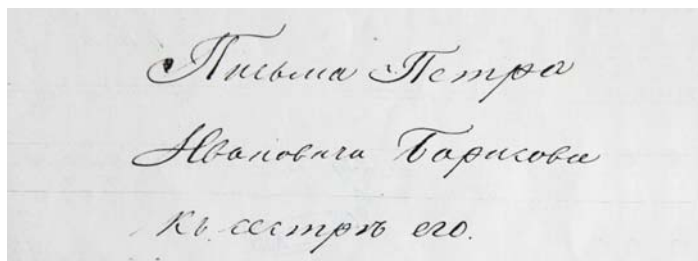 Письма Петра
Ивановича Борисова
къ сестрѣ его.